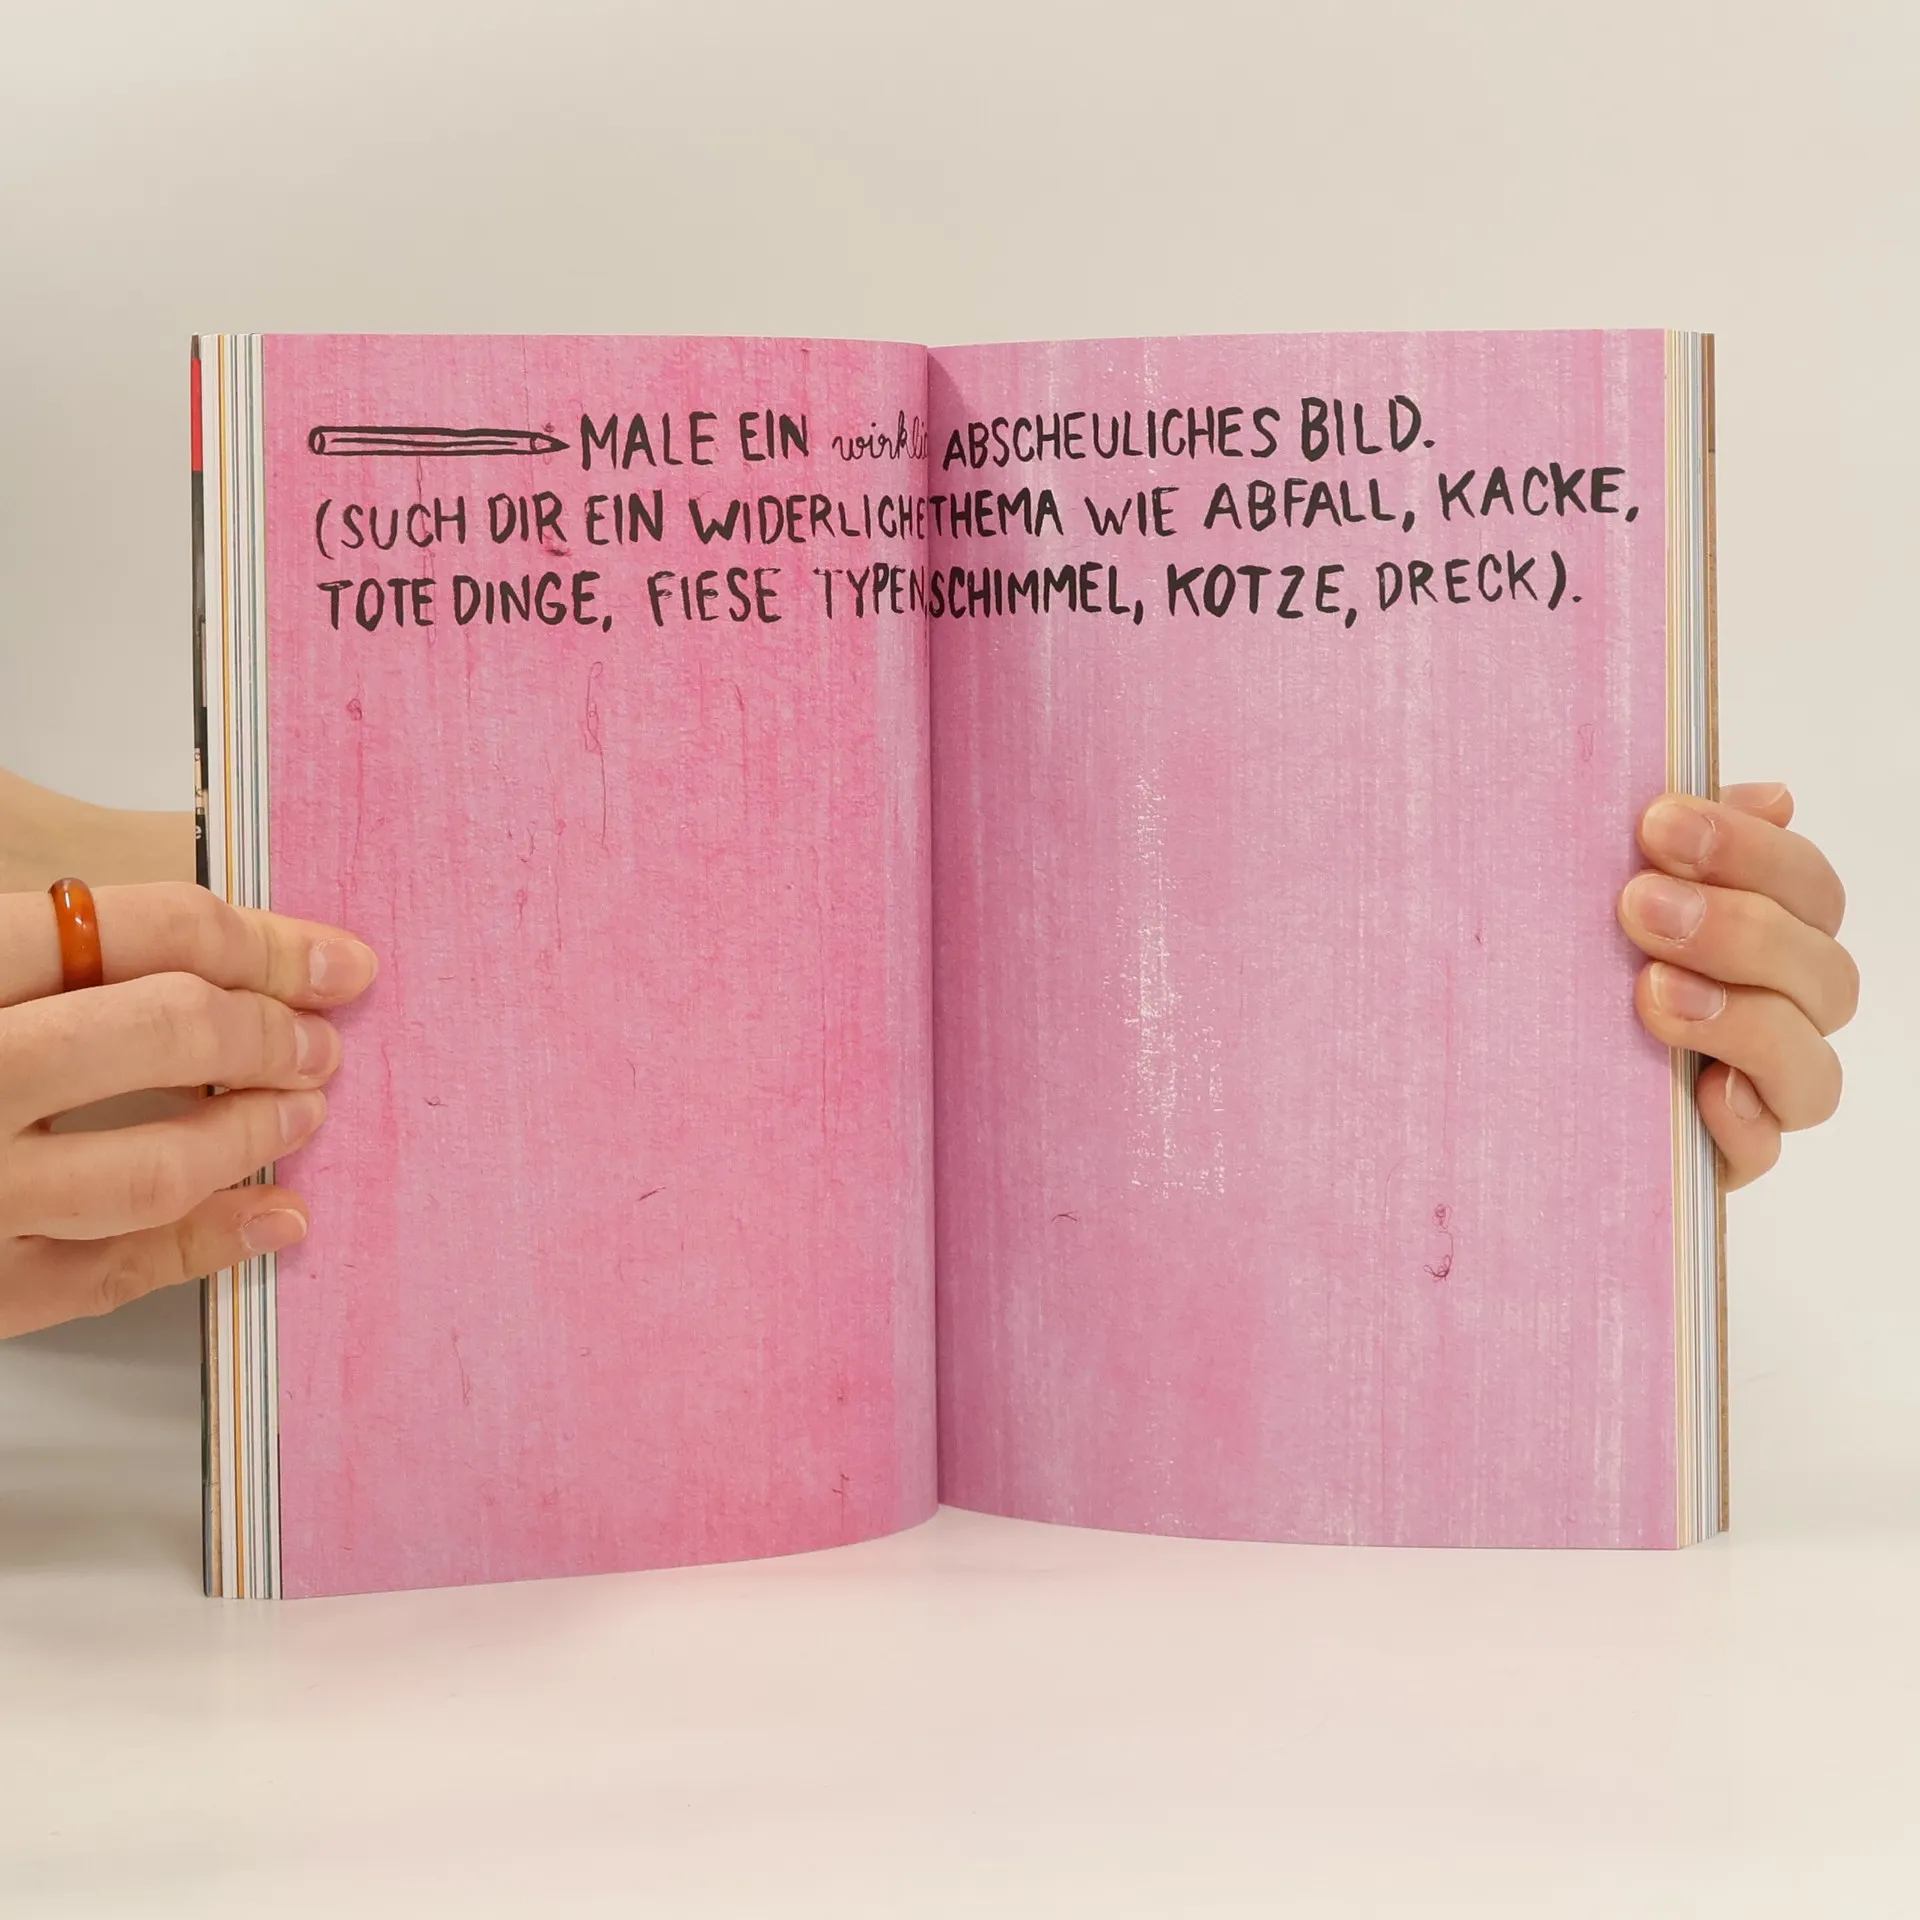 MALE EIN wirklic ABSCHEULICHES BILD.
(SUCH DIR EIN WIDERLICHE THEMA WIE ABFALL, KACKE,
TOTE DINGE, FIESE TYPEN, SCHIMMEL, KOTZE, DRECK).